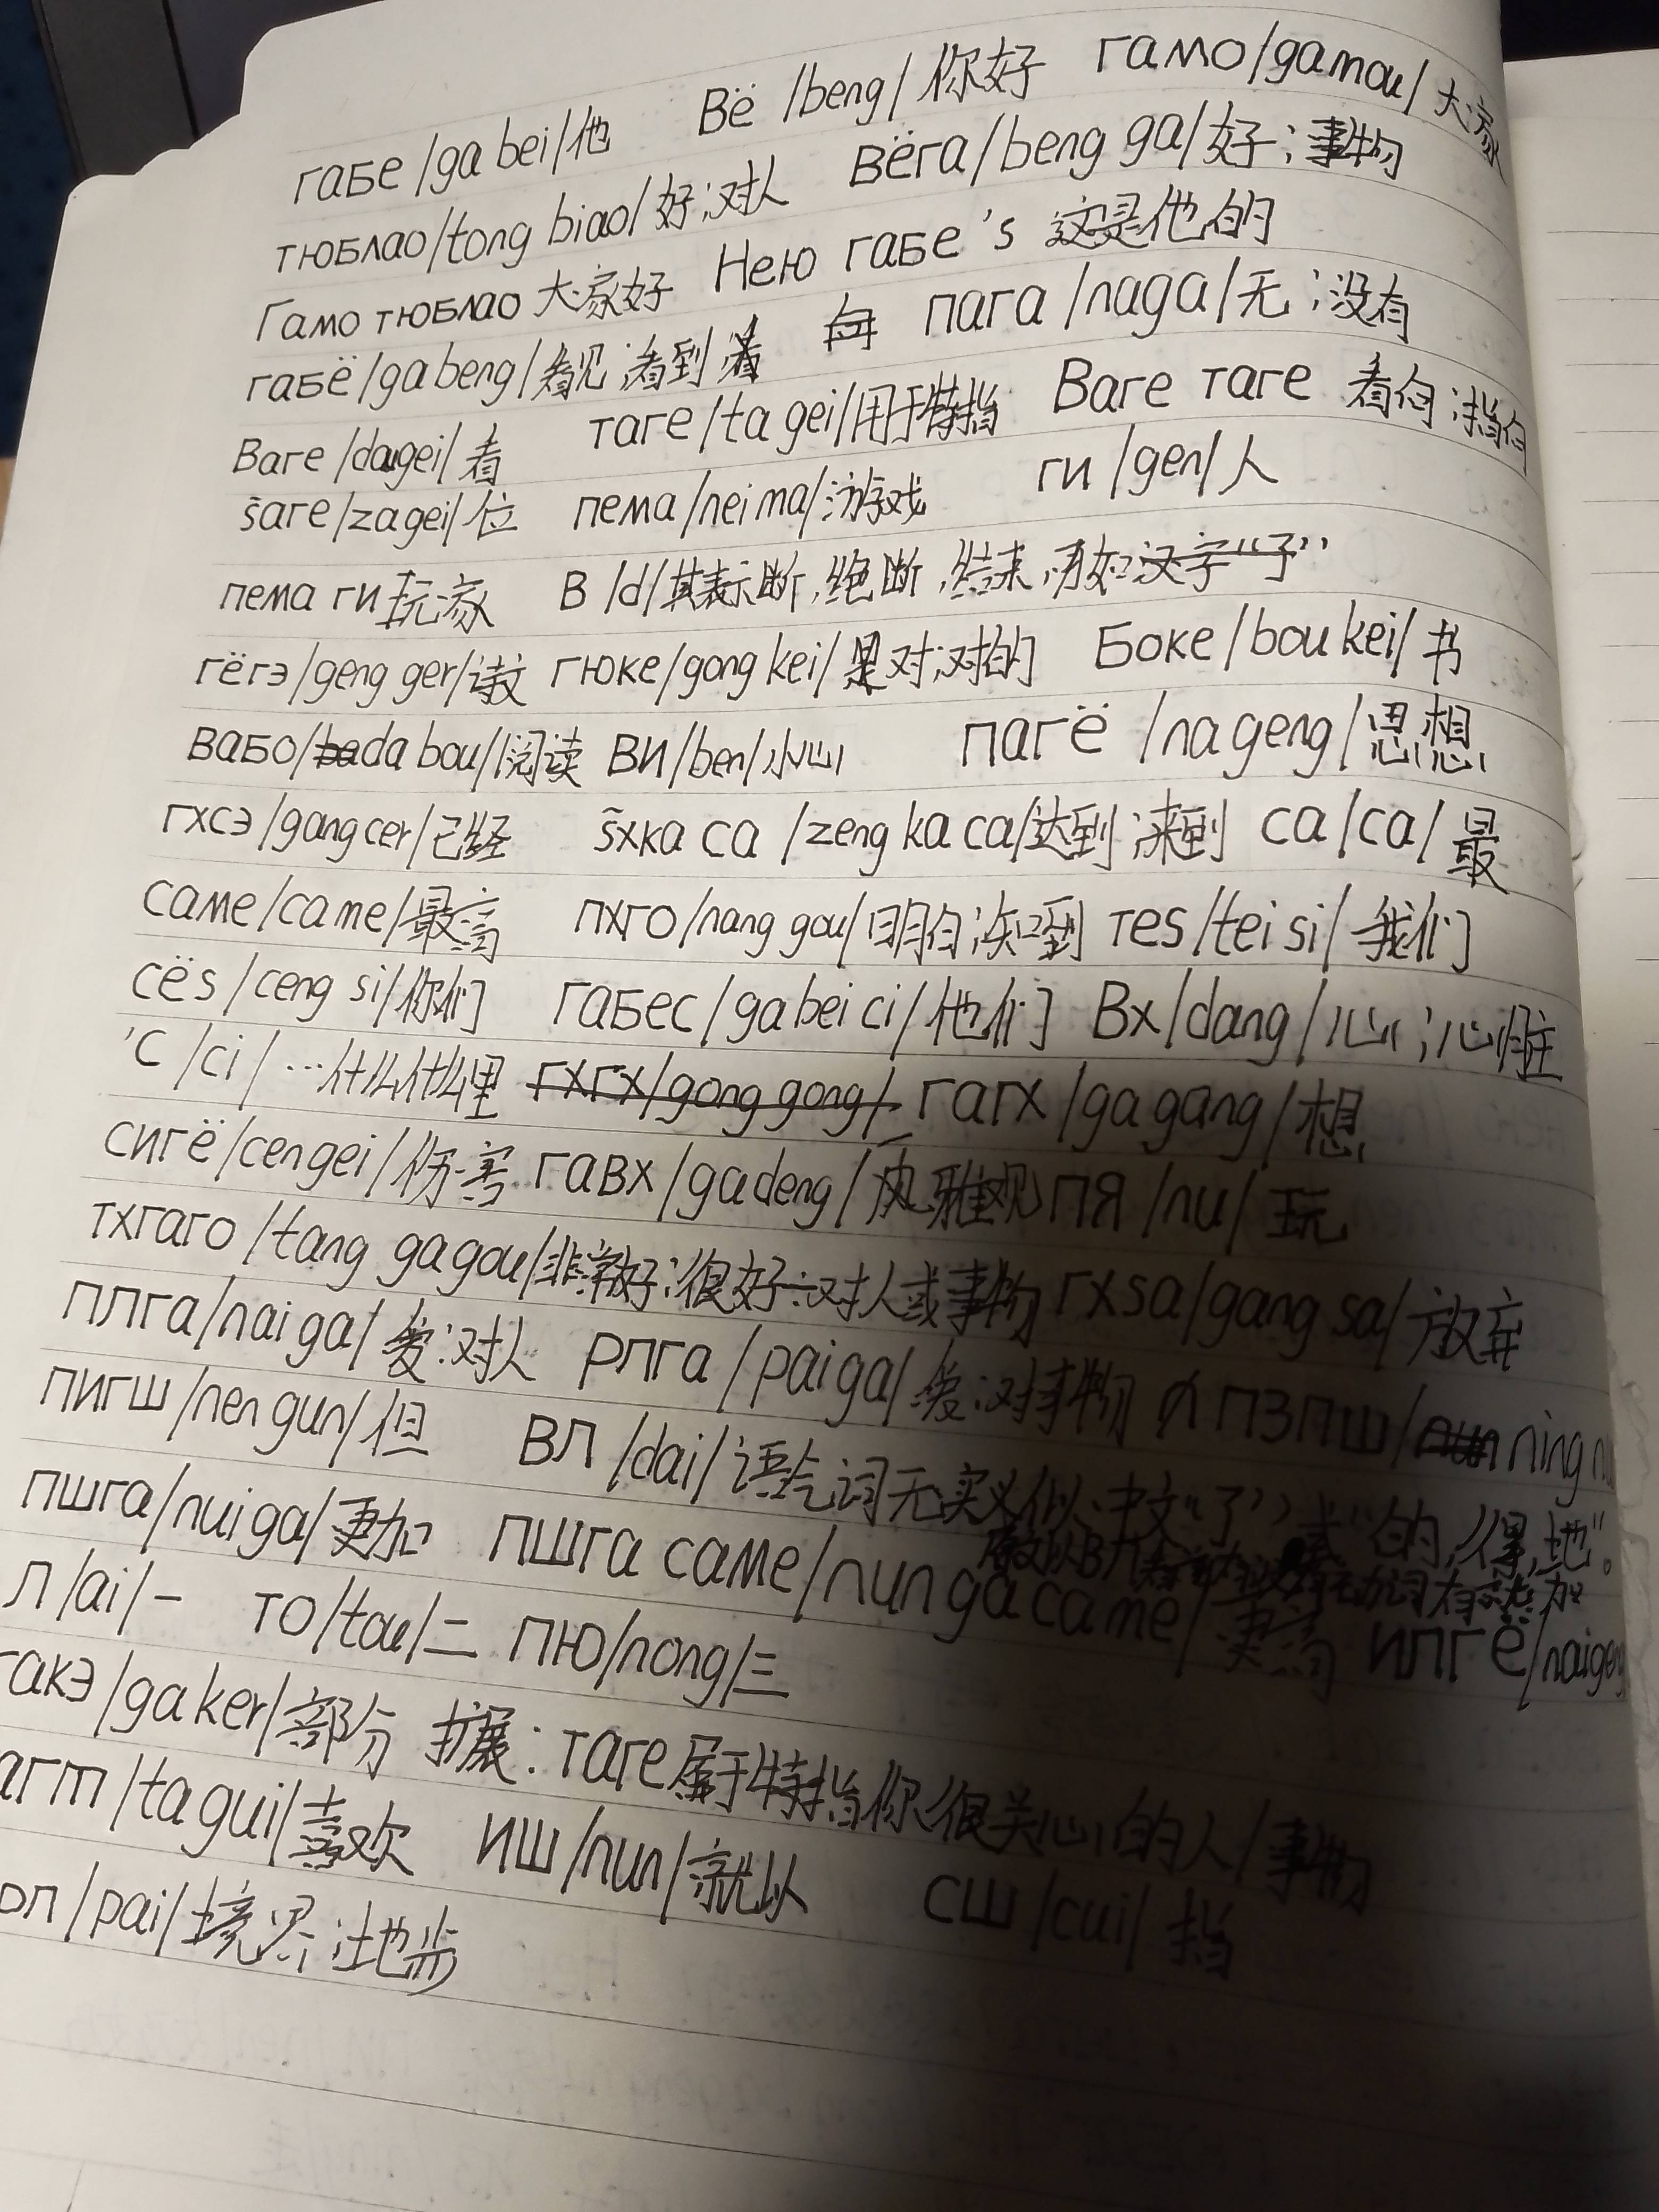 габе /ga bei/他 Вё /beng/ 你好 гамо/gamou/ 大家
тюблао/tong biao/ 好;对人 Вёга/beng ga/ 好;事物
Гамо тюблао 大家好 Нею габе's 这是他的
габё/gabeng/看见;看到 пага /naga/无;没有
Ваге /dagei/着 таге/ta gei/用于特指 Ваге таге 看向;指向
s̄аге/zagei/位 пема/nei ma/游戏 ги /gen/人
пема ги 玩家 В /d/其表示断,绝断,结束,再如汉字“了”
гёгэ/geng ger/该 гюке/gong kei/是对;对的 Боке/bou kei/书
Вабо/da bou/阅读 Ви/ben/小心 Пагё /na geng/思想
гхсэ/gang cer/已经 s̄хка са /zeng ka ca/达到;来到 са/ca/最
саме/ca me/最高 пхго/nang gou/明白;知到 теs/tei si/我们
сёs/ceng si/你们 габес/ga bei ci/他们 Вх/dang/心;心脏
'с /ci/ …什么什么里 гхгх/gong gong/ гагх /ga gang/想
сигё/cengei/伤害 гавх/gadeng/ 雅观 Пя /nu/ 玩
тхгаго /tang gagou/非常好;很好:对人或事物 гхsа/gang sa/放弃
плга/nai ga/ 爱:对人 рлга /pai ga/爱:对事物 ПЗПШ/ ning
пигш/nen gun/但 Вл /dai/语气词无实义似中文“了”或“的,得,地”。
пшга/nui ga/更加 пшга саме/nun ga ca me/更高 ИЛГё/naigeng
л /ai/一 то/tou/二 пю/nong/三
гакэ/ga ker/部分 扩展:таге属于特指你很关心的人/事物
агт/ta gui/喜欢 ИШ/nun/就以 сш /cui/ 指
рл/pai/境界;地步